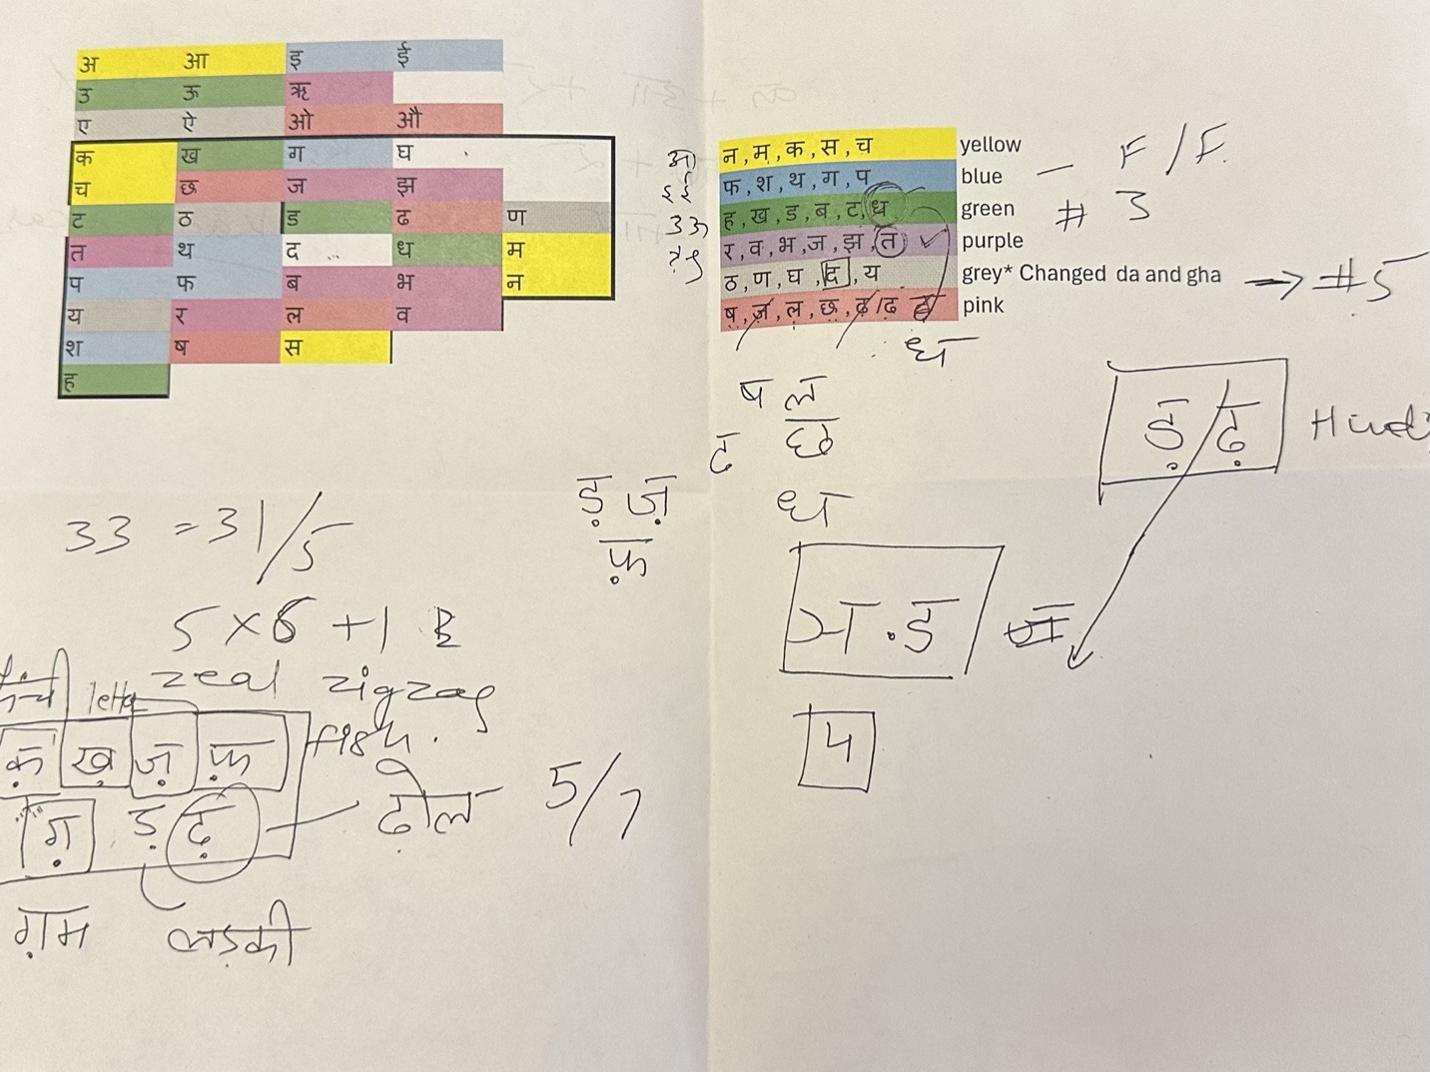 अ आ इ ई
उ ऊ ऋ
ए ऐ ओ औ
क ख ग घ
च छ ज झ
ट ठ ड ढ ण
त थ द ध म
प फ ब भ न
य र ल व
श ष स
ह
न, म, क, स, च yellow
फ, श, थ, ग, प blue
ह, ख, ड, ब, ट, ध green
र, व, भ, ज, झ, त purple
ठ, ण, घ, द, य grey* Changed da and gha
ष, ज़, ल, छ, ढ़ / ढ pink
F / F
# 3
→ #5
अ
इ ई
उ ऊ
ध
ष ल
छ
ढ
ध
ड़ / ढ़
ड़ ज़
फ़
33 = 31/5
5 x 6 + 1
zeal zigzag
fish.
क़ ख़ ज़ फ़
ग़ ड़ ढ़
ढोल 5/7
ग़म लड़की
4